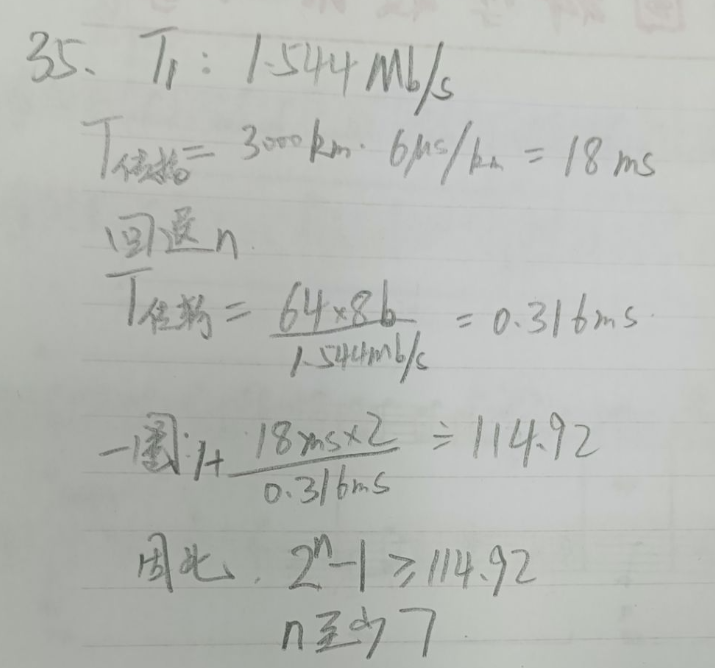 35、T₁：1.544Mb/s
T传播 = 3000km · 6μs/km = 18ms
回退n
T传输 = 64×8b / 1.544Mb/s = 0.316ms
一圈：1+ 18ms×2 / 0.316ms ≑ 114.92
因此，2ⁿ-1 ≥ 114.92
n至少7